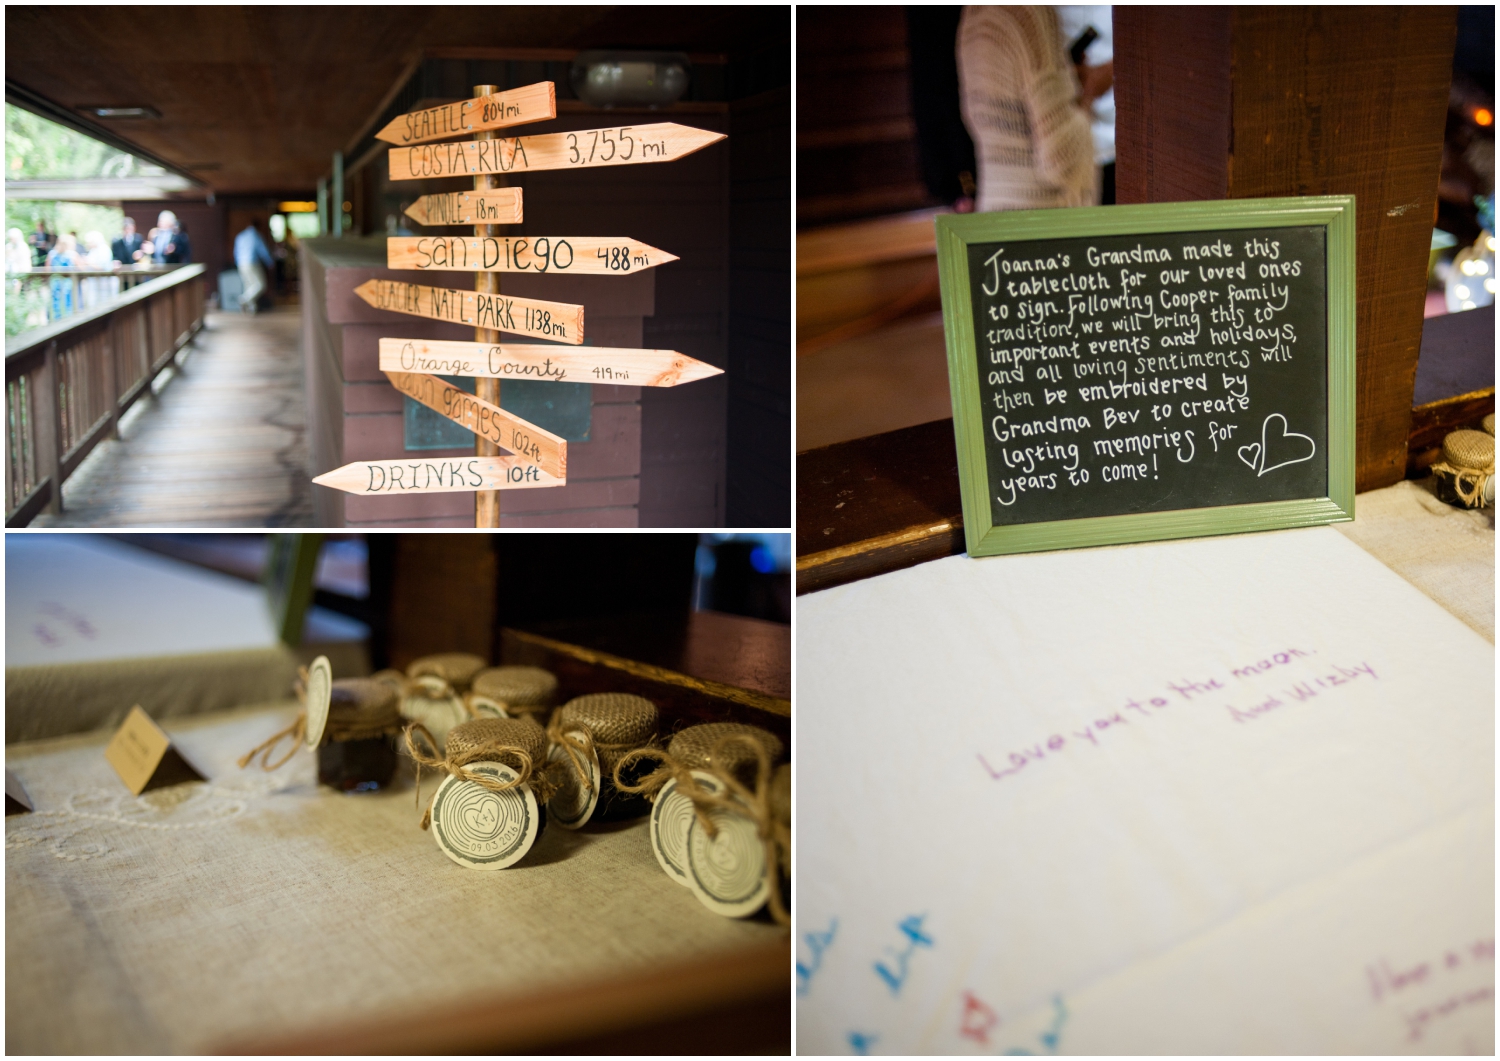 SEATTLE 804mi
COSTA RICA 3,755 mi.
PINOLE 18mi
san Diego 488 mi
GLACIER NAT'L PARK 1,138mi
Orange County 419mi
lawn games 102ft
DRINKS 10ft
Joanna's Grandma made this
tablecloth for our loved ones
to sign. Following Cooper family
tradition, we will bring this to
important events and holidays,
and all loving sentiments will
then be embroidered by
Grandma Bev to create
lasting memories for
years to come!
Love you to the moon.
K+J
09.03.2016